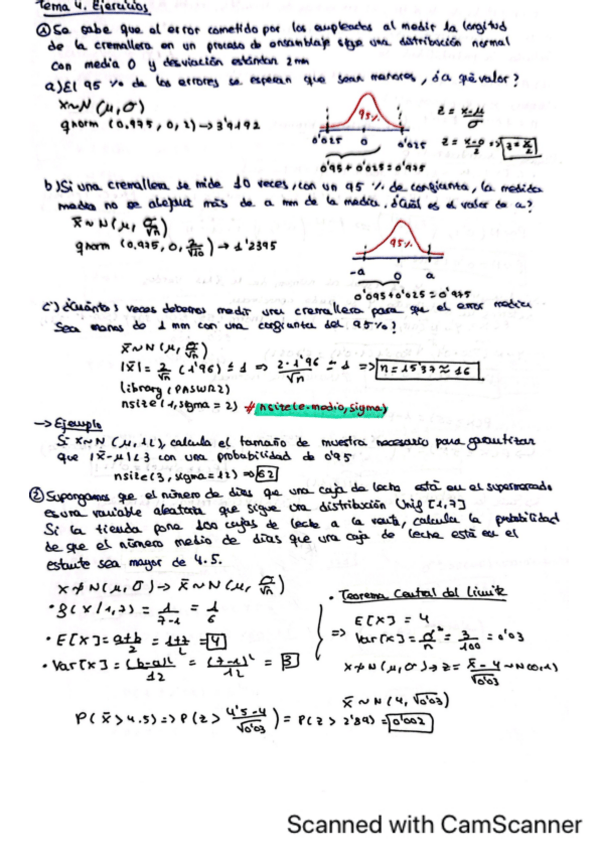 Tema 4. Ejercicios
① Se sabe que el error cometido por los empleados al medir la longitud
de la cremallera en un proceso de ensamblaje sigue una distribución normal
con media 0 y desviación estándar 2mm
a) El 95 % de los errores se esperan que sean menores, ¿a qé valor?
x~N(μ,σ)
qnorm (0,975, 0, 2) → 3'9192
95%
0'025 0 0'025
0'95 + 0'025 = 0'975
z = x-μ/σ
z = x-0/2 => z = x/2
b) Si una cremallera se mide 10 veces, con un 95 % de confianza, la medida
media no se alejaba más de a mm de la media, ¿cuál es el valor de a?
x̄ ~ N(μ, σ/√n)
qnorm (0,975, 0, 2/√10) → 1'2395
95%
-a 0 a
0'095 + 0'025 = 0'975
c) ¿Cuántas veces debemos medir una cremallera para que el error medio
sea menos de 1 mm con una confianza del 95%?
x̄ ~ N(μ, σ/√n)
|x̄| = 2/√n (1'96) ≤ 1 => 2·1'96/√n ≤ 1 => n = 15'37 ≈ 16
library (PASWR2)
nsize (1, sigma = 2) # nsize(e.medio, sigma)
→ Ejemplo
Si x~N (μ, 12), calcula el tamaño de muestra necesario para garantizar
que |x̄-μ|<3 con una probabilidad de 0'95
nsize (3, sigma=12) => 62
② Supongamos que el número de días que una caja de leche está en el supermercado
es una variable aleatoria que sigue una distribución Unif [1,7]
Si la tienda pone 100 cajas de leche a la venta, calcula la probabilidad
de que el número medio de días que una caja de leche está en el
estante sea mayor de 4.5.
x ≁ N(μ,σ) → x̄ ~ N(μ, σ/√n)
• f(x/1,7) = 1/7-1 = 1/6
• E[x] = a+b/2 = 1+7/2 = 4
• Var[x] = (b-a)²/12 = (7-1)²/12 = 3
• Teorema Central del Límite
E[x] = 4
=> Var[x] = σ²/n = 3/100 = 0'03
x ≁ N(μ,σ) → z = x̄-4/√0'03 ~ N(0,1)
x̄ ~ N (4, √0'03)
P(x̄ > 4.5) => P(z > 4'5-4/√0'03) = P(z > 2'89) = 0'002
Scanned with CamScanner